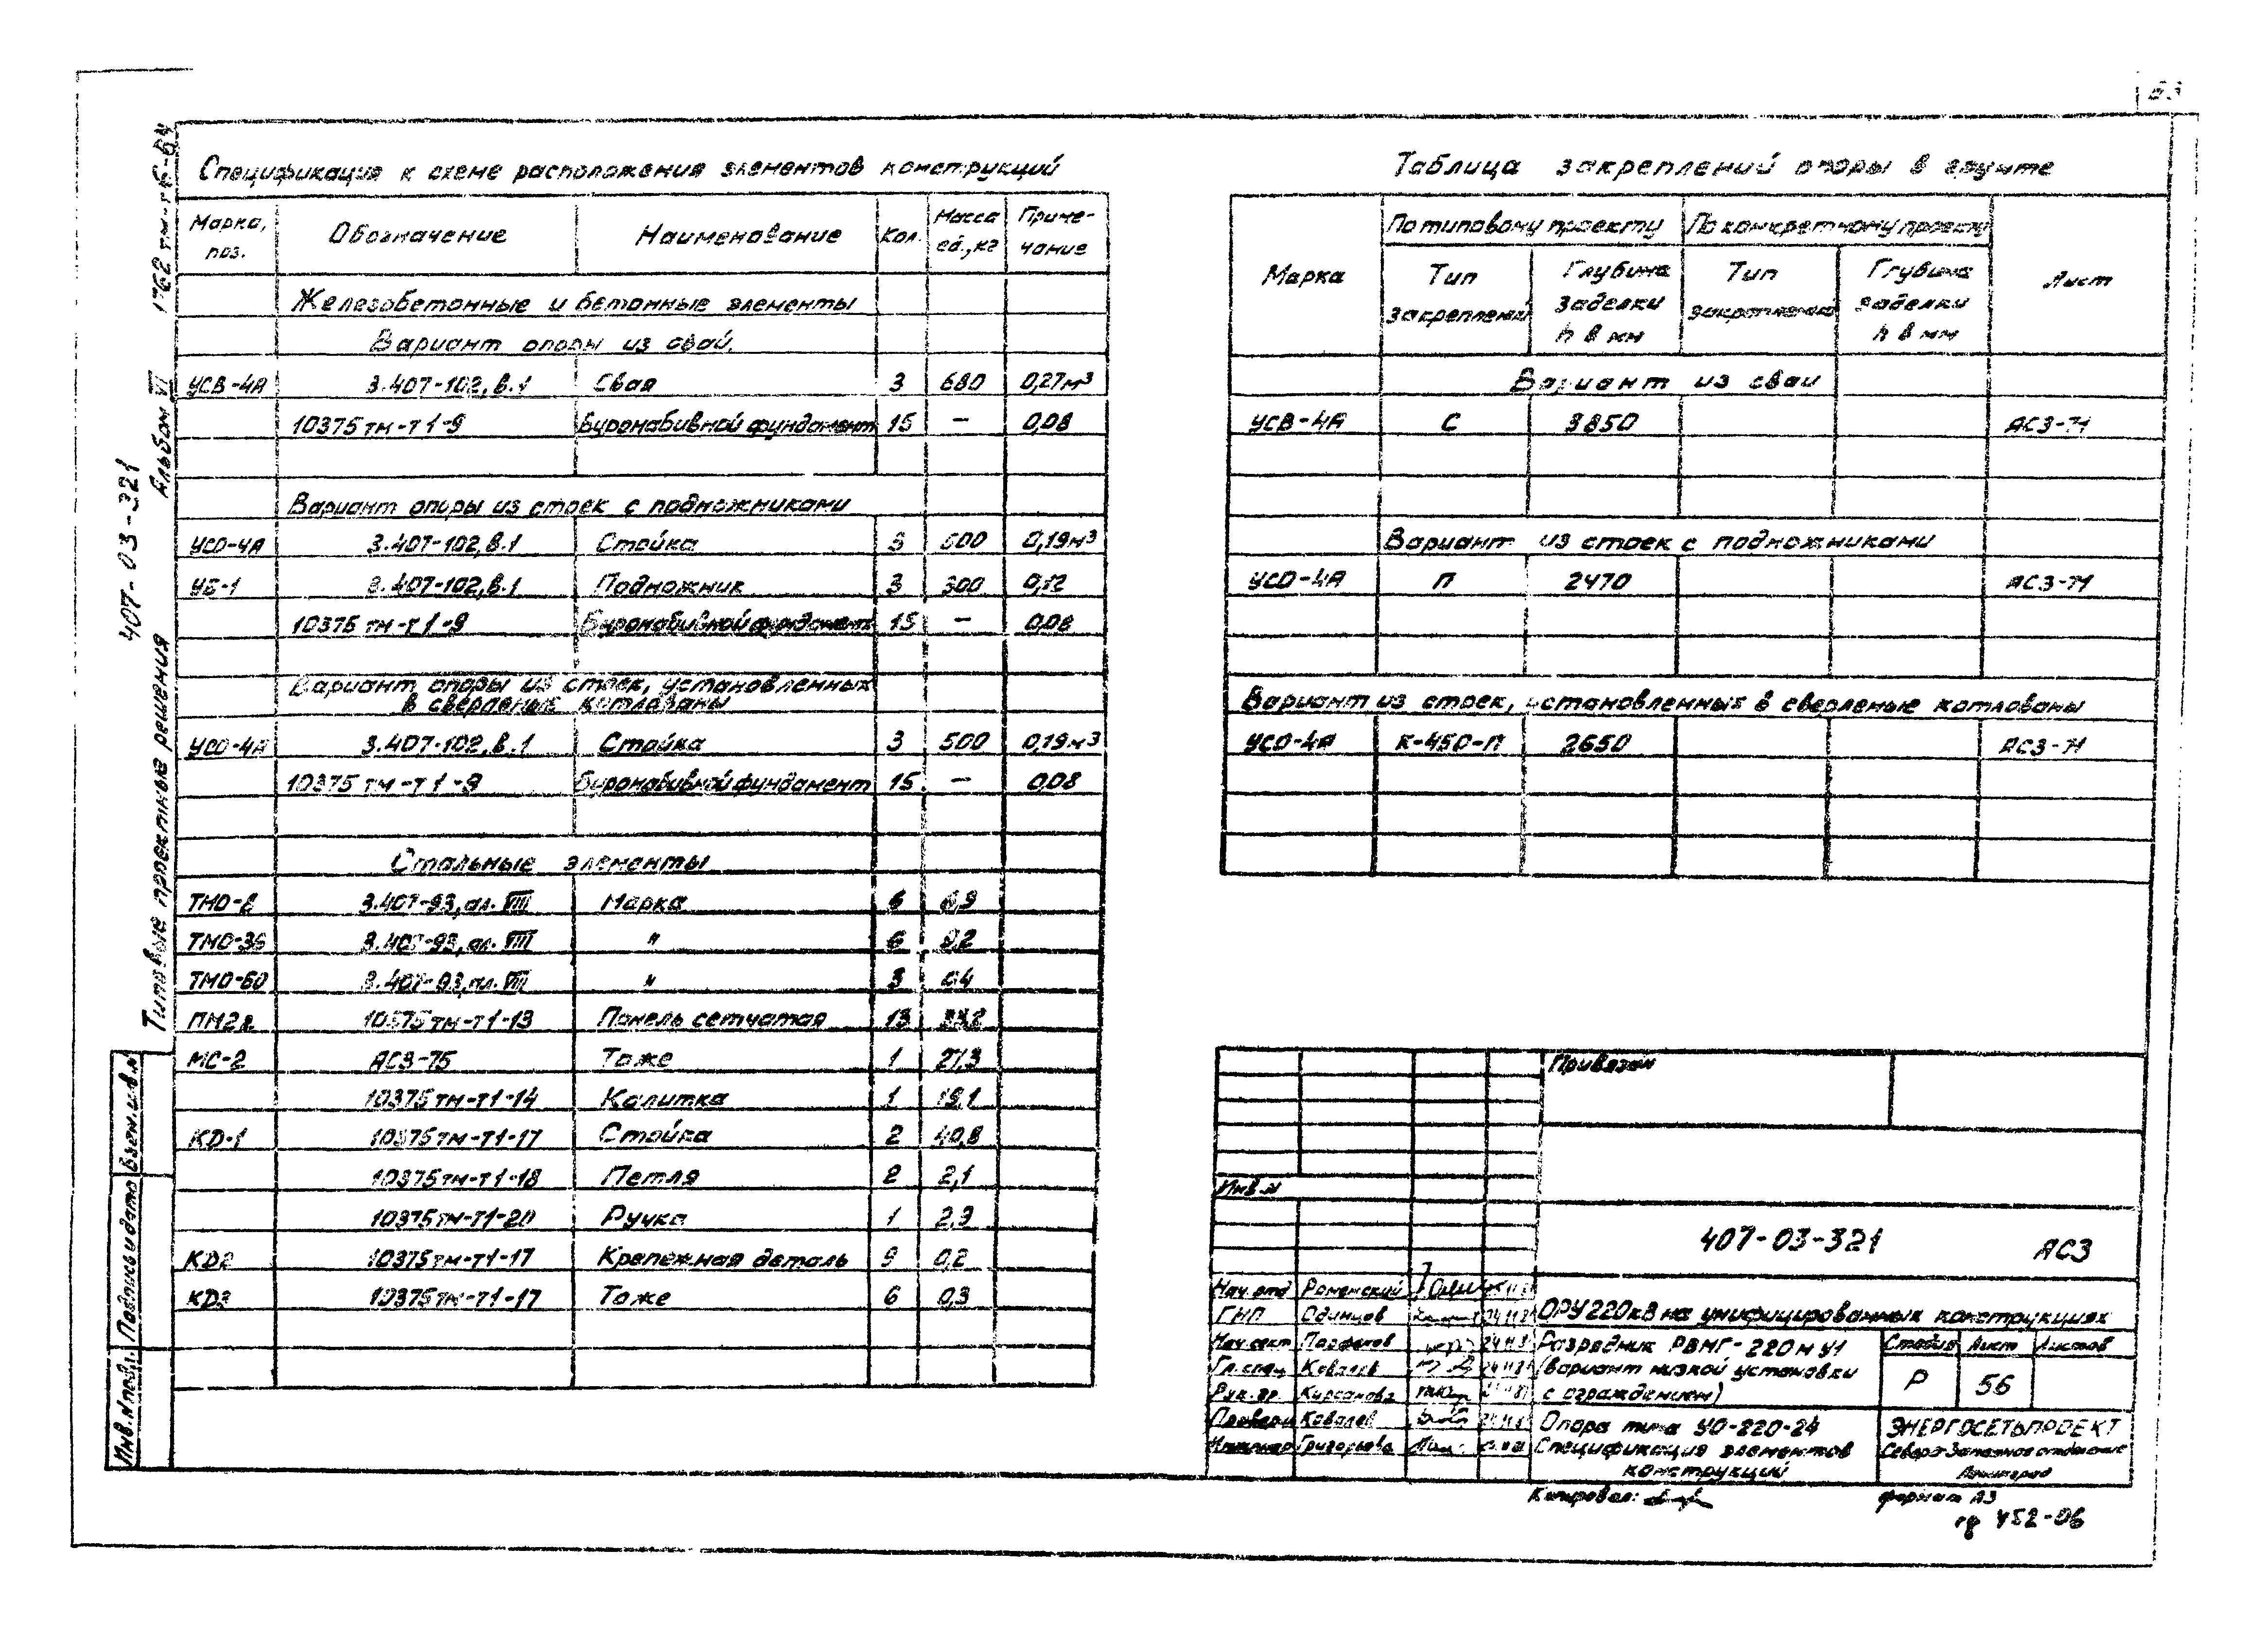 Спецификация к схеме расположения элементов конструкций
Марка, поз. Обозначение Наименование Кол. Масса ед., кг Приме-чание
Железобетонные и бетонные элементы
Вариант опоры из свай.
УСВ-4А 3.407-102, в.1 Свая 3 680 0,27м³
10375тм-т1-9 Буронабивной фундамент 15 — 0,08
Вариант опоры из стоек с подножниками
УСО-4А 3.407-102, в.1 Стойка 3 500 0,19м³
УБ-1 3.407-102, в.1 Подножник 3 300 0,12
10375тм-т1-9 Буронабивной фундамент 15 — 0,08
Вариант опоры из стоек, установленных
в сверленые котлованы
УСО-4А 3.407-102, в.1 Стойка 3 500 0,19м³
10375тм-т1-9 Буронабивной фундамент 15 — 0,08
Стальные элементы
ТМО-2 3.407-93, ал. VIII Марка 6
ТМО-36 3.407-93, ал. VIII " 6
ТМО-60 3.407-93, ал. VIII " 3
10375тм-т1-13 Панель сетчатая 13
МС-2 АС3-75 Тоже 1 21,3
10375тм-т1-14 Калитка 1 19,1
КД-1 10375тм-т1-17 Стойка 2 40,8
10375тм-т1-18 Петля 2 2,1
10375тм-т1-20 Ручка 1 2,9
КД2 10375тм-т1-17 Крепежная деталь 9 0,2
КД3 10375тм-т1-17 Тоже 6 0,3
Таблица закреплений опоры в грунте
Марка По типовому проекту По конкретному проекту Лист
Тип закреплений Глубина заделки h в мм Тип закреплений Глубина заделки h в мм
Вариант из сваи
УСВ-4А С 3850 АС3-71
Вариант из стоек с подножниками
УСО-4А П 2470 АС3-71
Вариант из стоек, установленных в сверленые котлованы
УСО-4А К-450-П 2650 АС3-71
Привязан
Инв.N
407-03-321 АС3
Нач.отд Роменский
ГИП Одинцов
ОРУ 220кВ на унифицированных конструкциях
Нач.сект Парфенов
Гл.спец Ковалев
Рук.гр. Кирсанова
Провери Ковалев
Инженер Григорьева
Разрядник РВМГ-220м У1
(вариант низкой установки
с ограждением)
Стадия Лист Листов
Р 56
Опора типа УО-220-24
Спецификация элементов
конструкций
ЭНЕРГОСЕТЬПРОЕКТ
Северо-Западное отделение
Ленинград
Копировал:
формат А3
452-06
407-03-321
Типовые проектные решения Альбом VI
Взам.инв.N
Подпись и дата
Инв.N подл.